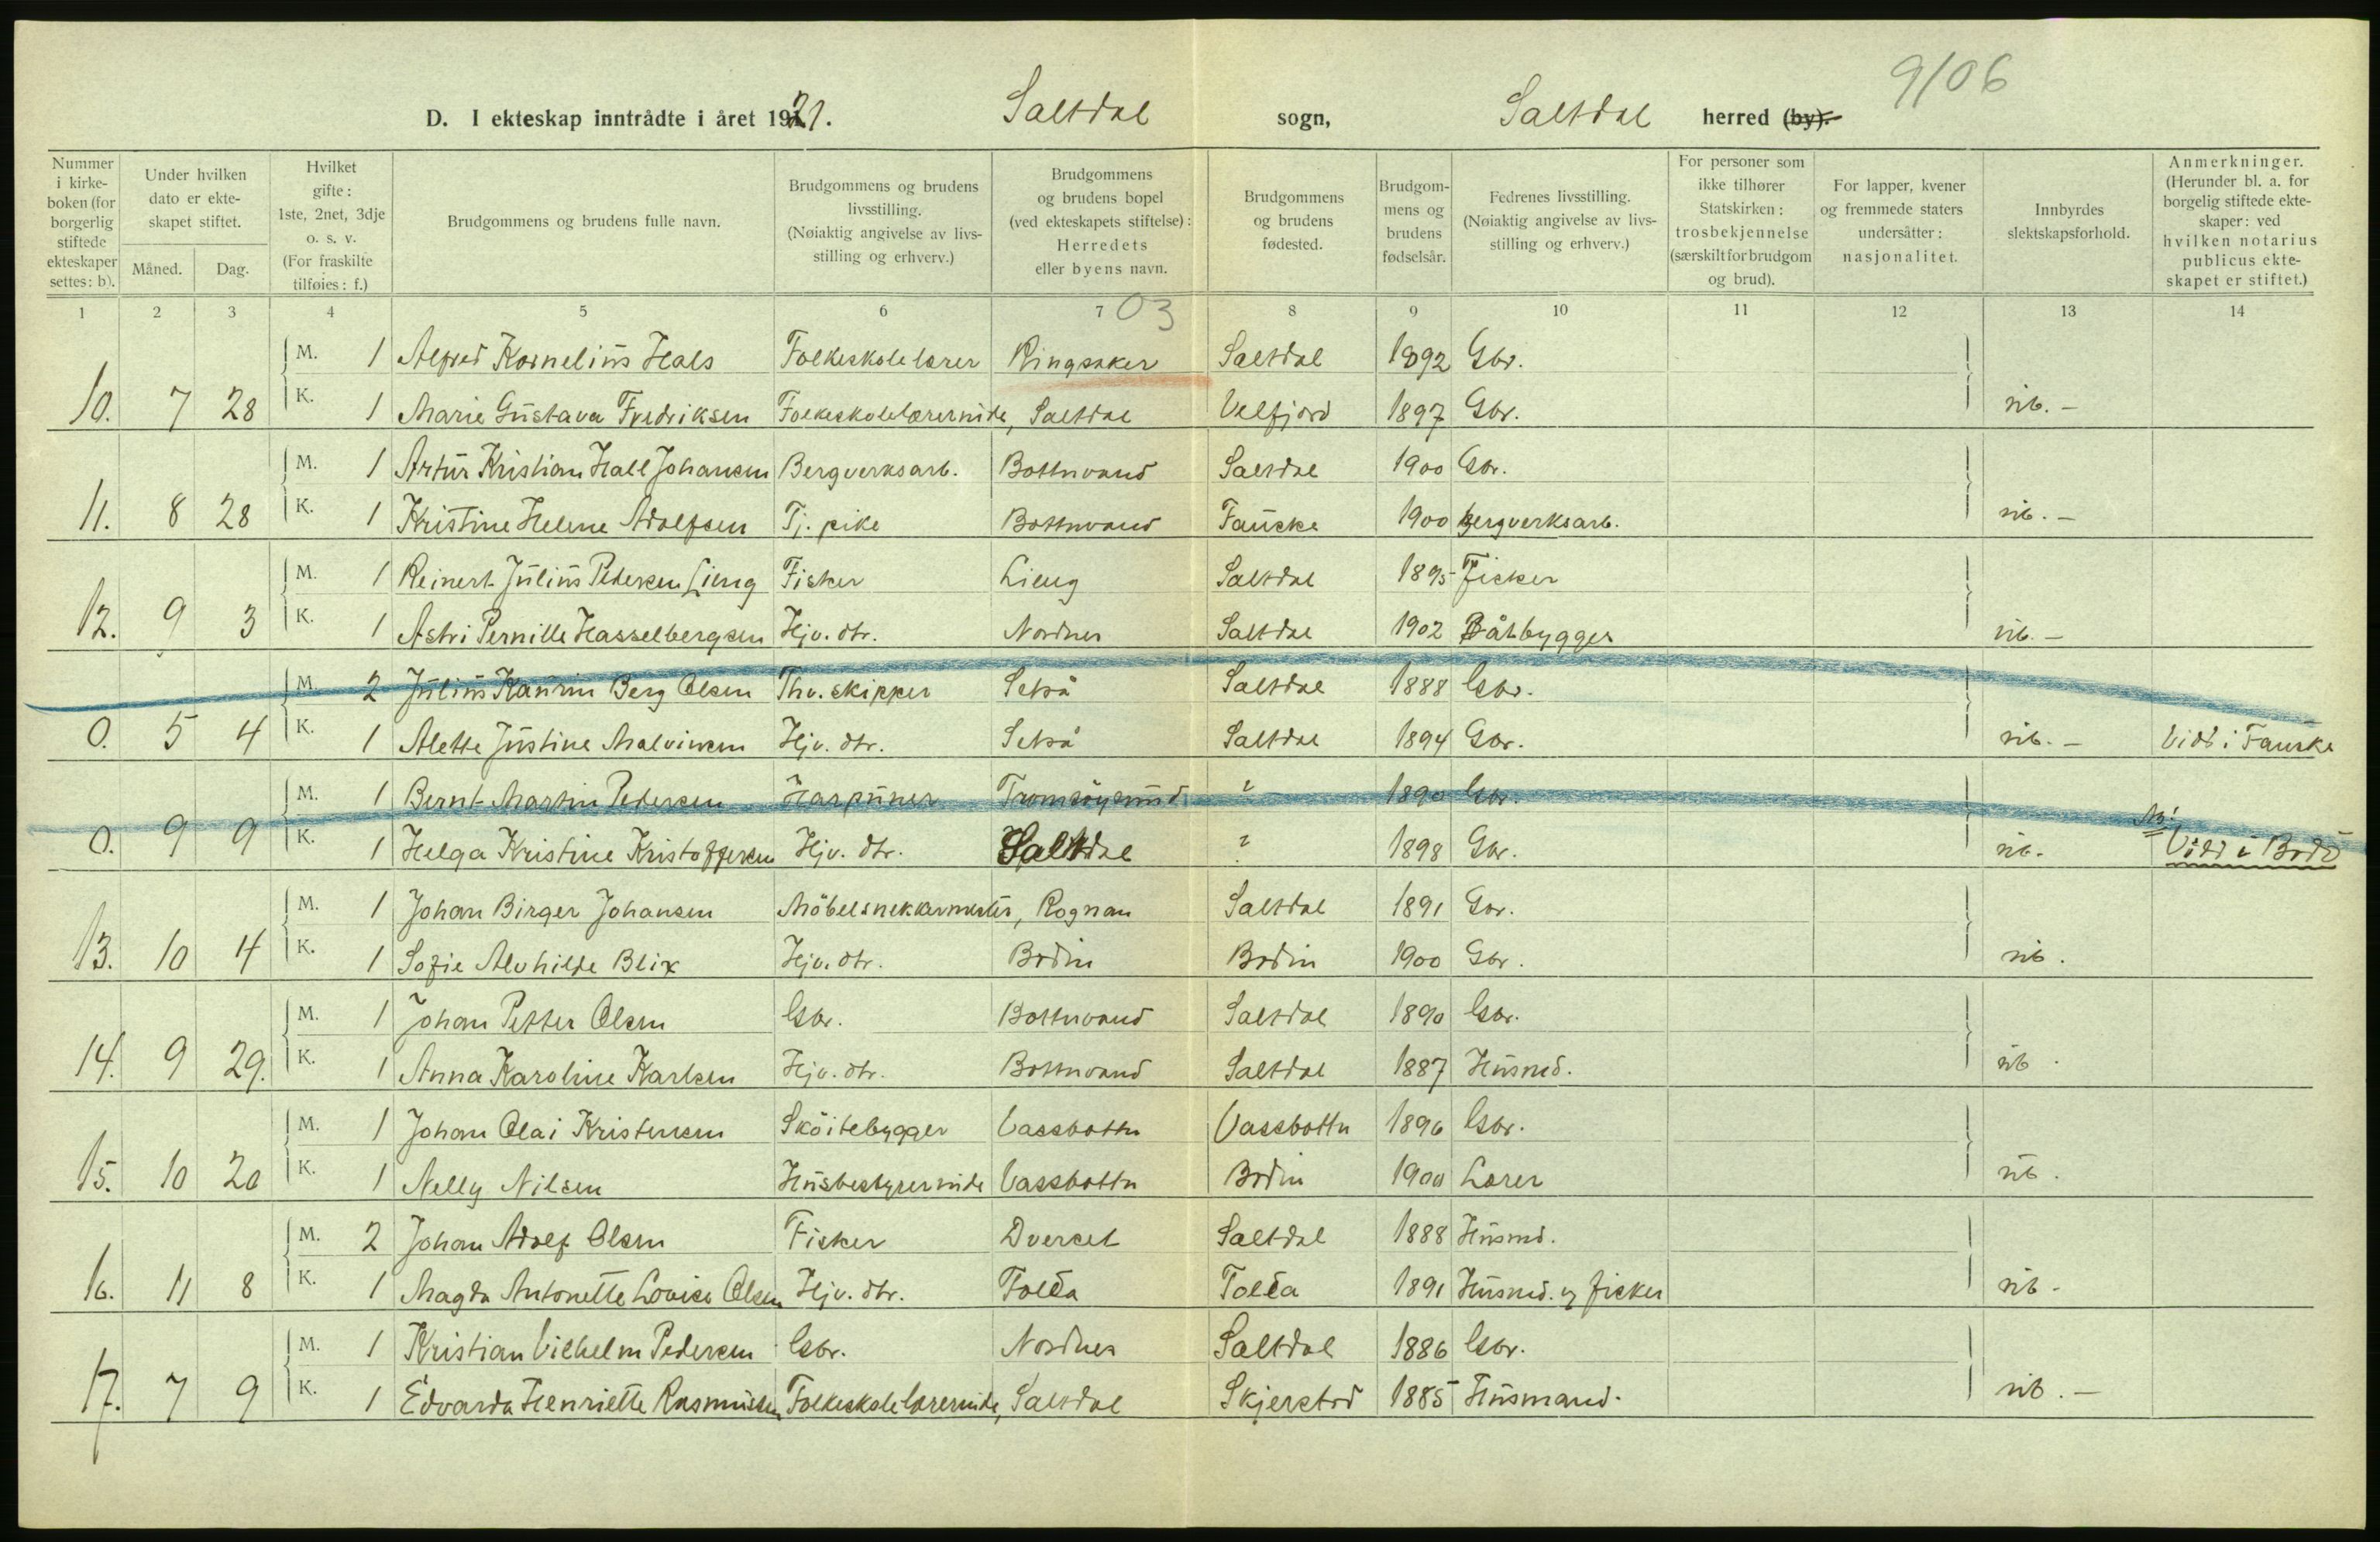 9/06
D. I ekteskap inntrådte i året 1921. Saltdal sogn, Saltdal herred (by).
Nummer i kirkeboken (for borgerlig stiftede ekteskaper settes: b).
Under hvilken dato er ekteskapet stiftet.
Måned. Dag.
Hvilket gifte: 1ste, 2net, 3dje o. s. v. (For fraskilte tilføies: f.)
Brudgommens og brudens fulle navn.
Brudgommens og brudens livsstilling. (Nøiaktig angivelse av livsstilling og erhverv.)
Brudgommens og brudens bopel (ved ekteskapets stiftelse): Herredets eller byens navn.
Brudgommens og brudens fødested.
Brudgommens og brudens fødselsår.
Fedrenes livsstilling. (Nøiaktig angivelse av livsstilling og erhverv.)
For personer som ikke tilhører Statskirken: trosbekjennelse (særskilt for brudgom og brud).
For lapper, kvener og fremmede staters undersåtter: nasjonalitet.
Innbyrdes slektskapsforhold.
Anmerkninger. (Herunder bl. a. for borgelig stiftede ekteskaper: ved hvilken notarius publicus ekteskapet er stiftet.)
1 2 3 4 5 6 7 03 8 9 10 11 12 13 14
M. 1 Alfred Kornelius Hals Folkeskolelærer Ringsaker Saltdal 1892 Gbr.
10. 7 28 K. 1 Marie Gustava Fredriksen Folkeskolelærerinde, Saltdal Velfjord 1897 Gbr. nb. –
M. 1 Artur Kristian Hall Johansen Bergverksarb. Bottnvand Saltdal 1900 Gbr.
11. 8 28 K. 1 Kristine Helene Adolfsen Tj. pike Bottnvand Fauske 1900 bergverksarb. nb. –
M. 1 Reinert Julius Pedersen Lieng Fisker Lieng Saltdal 1895 Fisker
12. 9 3 K. 1 Astri Pernille Hasselbergsen Hjv. dtr. Nordnes Saltdal 1902 Båtbygger nb. –
M. 2 Julius Kaurin Berg Olsen Thv. skipper Setså Saltdal 1888 Gbr.
0. 5 4 K. 1 Alette Justine Malvinsen Hjv. dtr. Setså Saltdal 1894 Gbr. nb. – Vidd i Fauske
M. 1 Bernt Martin Pedersen Harpuner Tromsöysund ? 1890 Gbr.
0. 9 9 K. 1 Helga Kristine Kristoffersen Hjv. dtr. Saltdal ? 1898 Gbr. nb. Nb! Vidd i Bodö
M. 1 Johan Birger Johansen Möbelsnekkermester, Rognan Saltdal 1891 Gbr.
13. 10 4 K. 1 Sofie Alvhilde Blix Hjv. dtr. Bodin Bodin 1900 Gbr. nb.
M. 1 Johan Petter Olsen Gbr. Bottnvand Saltdal 1890 Gbr.
14. 9 29. K. 1 Anna Karoline Karlsen Hjv. dtr. Bottnvand Saltdal 1887 Husmd. nb.
M. 1 Johan Olai Kristensen Sköitebygger Vassbottn Vassbottn 1896 Gbr.
15. 10 20 K. 1 Nelly Nilsen Husbestyrerinde Vassbottn Bodin 1900 Lærer nb.
M. 2 Johan Adolf Olsen Fisker Dverset Saltdal 1888 Husmd.
16. 11 8 K. 1 Magda Antonette Lovise Olsen Hjv. dtr. Folda Folda 1891 Husmd. og fisker nb.
M. 1 Kristian Vilhelm Pedersen Gbr. Nordnes Saltdal 1886 Gbr.
17. 7 9 K. 1 Edvarda Henriette Rasmussen Folkeskolelærerinde, Saltdal Skjerstad 1885 Husmand. nb. –